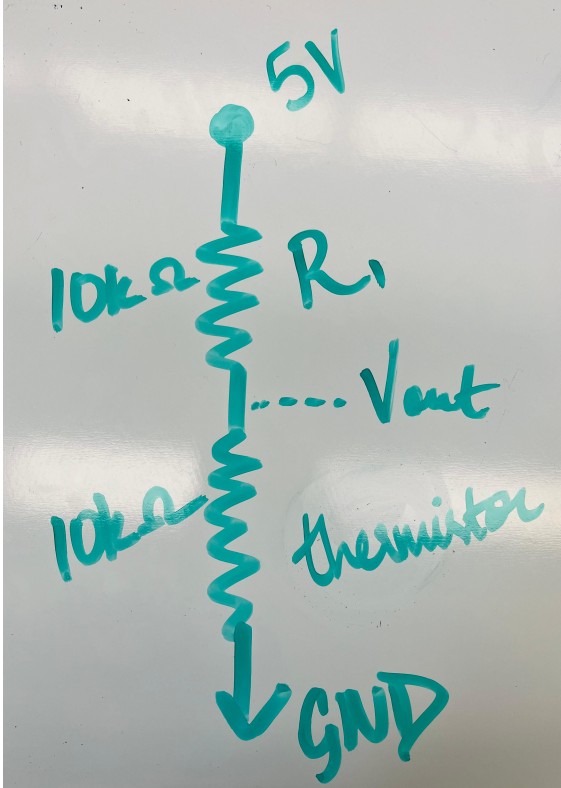 5V
10kΩ
R1
Vout
10kΩ
thermistor
GND